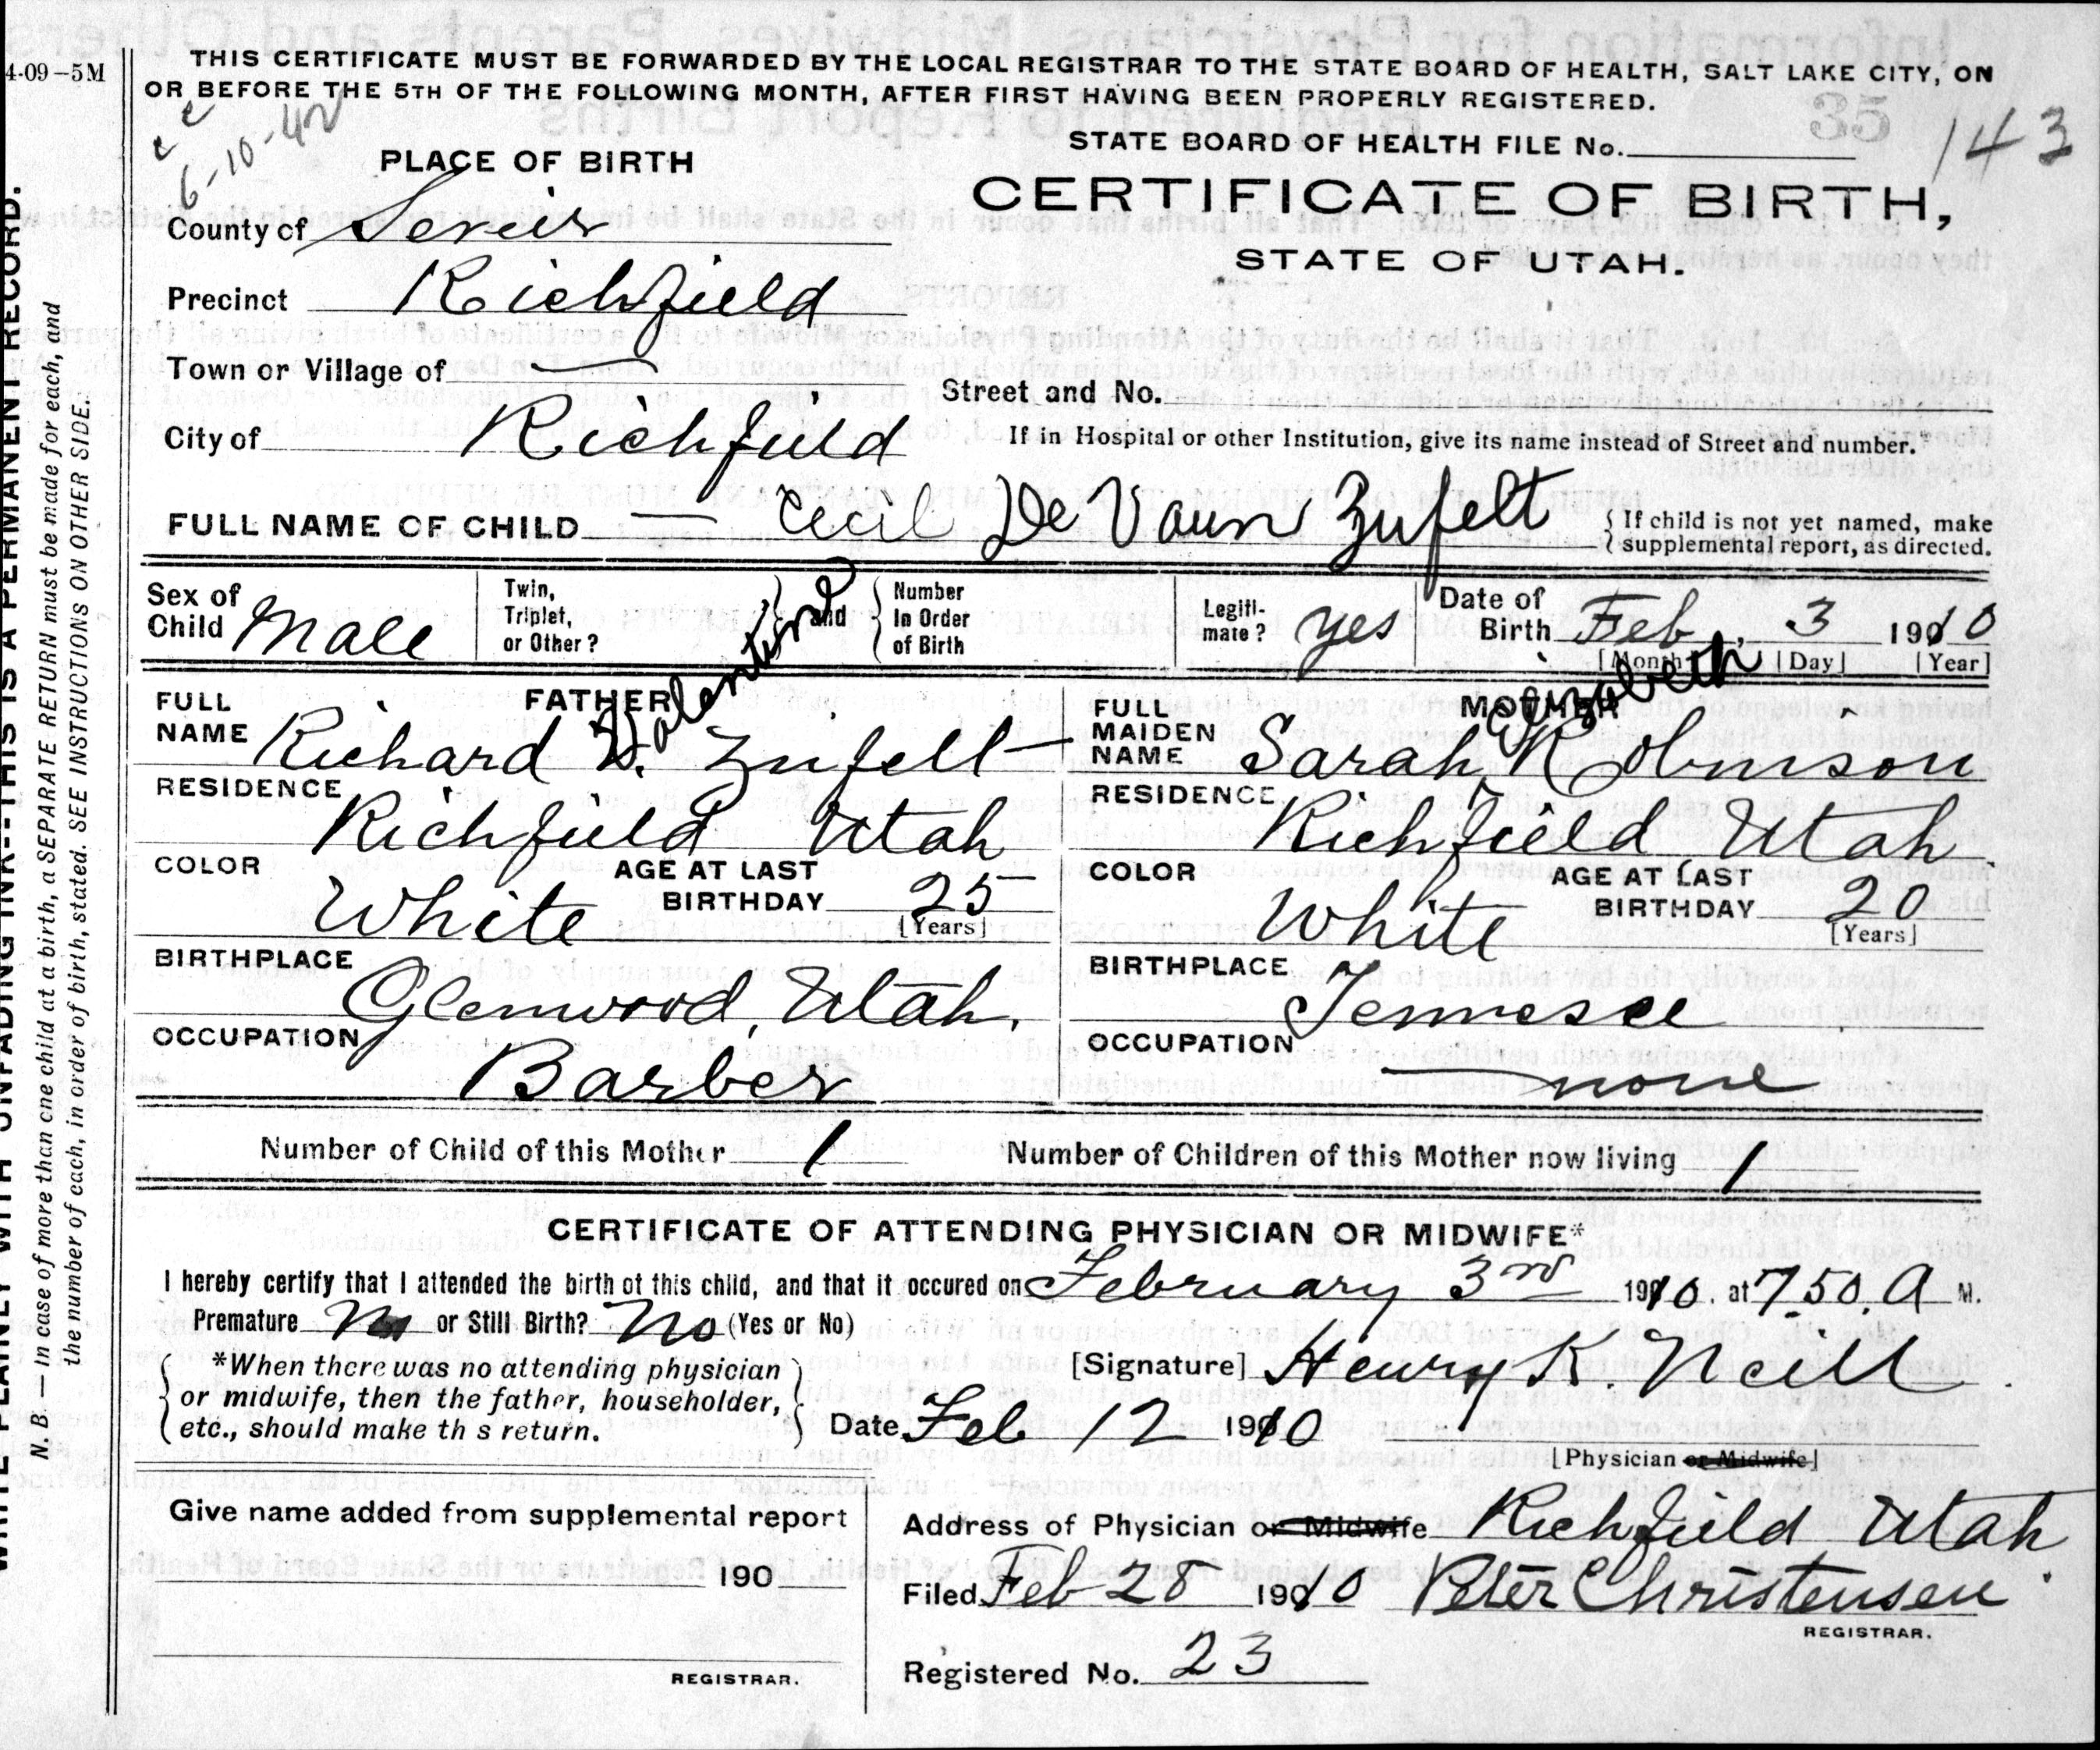 4-09-5M
THIS CERTIFICATE MUST BE FORWARDED BY THE LOCAL REGISTRAR TO THE STATE BOARD OF HEALTH, SALT LAKE CITY, ON
OR BEFORE THE 5TH OF THE FOLLOWING MONTH, AFTER FIRST HAVING BEEN PROPERLY REGISTERED.
6-10-42
35
143
STATE BOARD OF HEALTH FILE No.
PLACE OF BIRTH
CERTIFICATE OF BIRTH,
STATE OF UTAH.
County of Sevier
Precinct Richfield
Town or Village of —
Street and No.
City of Richfield
If in Hospital or other Institution, give its name instead of Street and number.
FULL NAME OF CHILD — Cecil De Vaun Zufelt
If child is not yet named, make
supplemental report, as directed.
Sex of Child Male
Twin, Triplet, or Other?
and
Number In Order of Birth
Legiti-mate? yes
Date of Birth Feb, 3 1910
[Month] [Day] [Year]
FATHER
FULL NAME Richard V. Zufelt
Valentine
RESIDENCE
Richfield Utah
COLOR White
AGE AT LAST BIRTHDAY 25
[Years]
BIRTHPLACE
Glenwood, Utah.
OCCUPATION
Barber
MOTHER
Elizabeth
FULL MAIDEN NAME Sarah Robinson
RESIDENCE
Richfield, Utah
COLOR White
AGE AT LAST BIRTHDAY 20
[Years]
BIRTHPLACE
Tennesee
OCCUPATION
none
Number of Child of this Mother 1
Number of Children of this Mother now living 1
CERTIFICATE OF ATTENDING PHYSICIAN OR MIDWIFE*
I hereby certify that I attended the birth of this child, and that it occured on February 3rd 1910. at 7.50. A M.
Premature No or Still Birth? No (Yes or No)
*When there was no attending physician
or midwife, then the father, householder,
etc., should make th s return.
[Signature] Henry K. Neill
Date Feb 12 1910
[Physician or Midwife]
Give name added from supplemental report
190
REGISTRAR.
Address of Physician or Midwife Richfield Utah
Filed Feb 28 1910 Peter Christensen
REGISTRAR.
Registered No. 23
WRITE PLAINLY WITH UNFADING INK--THIS IS A PERMANENT RECORD.
N. B — In case of more than one child at a birth, a SEPARATE RETURN must be made for each, and
the number of each, in order of birth, stated. SEE INSTRUCTIONS ON OTHER SIDE.